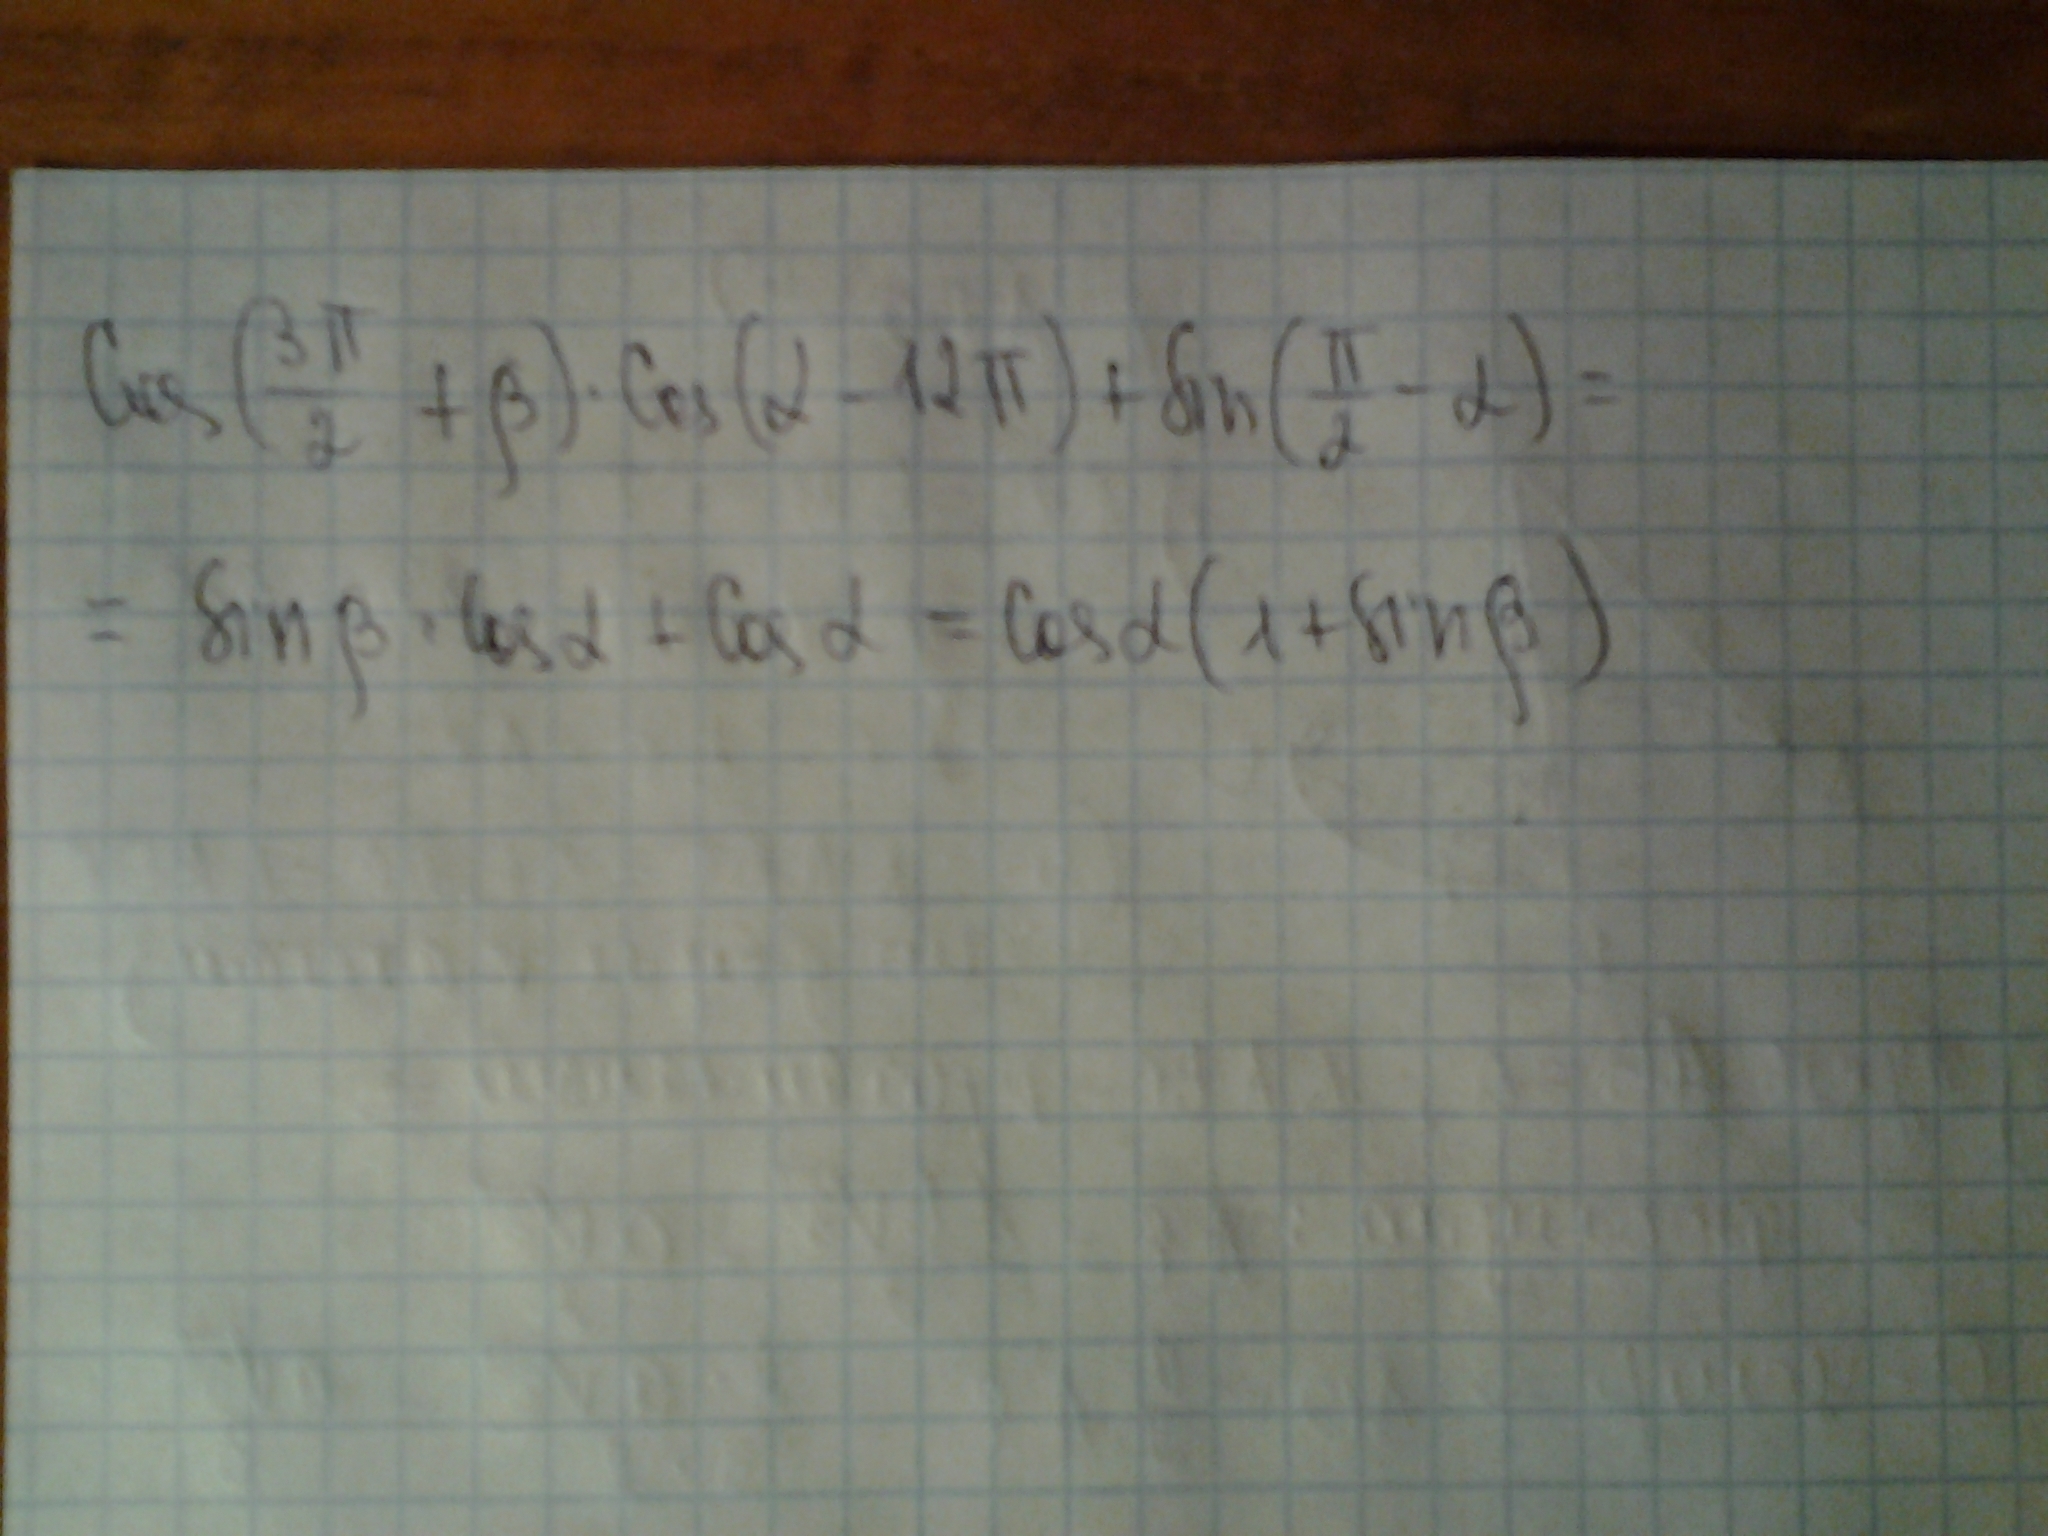 Cos(3π/2 + β)·Cos(α - 12π) + Sin(π/2 - α) =
= Sin β · Cos α + Cos α = Cos α(1 + Sin β)